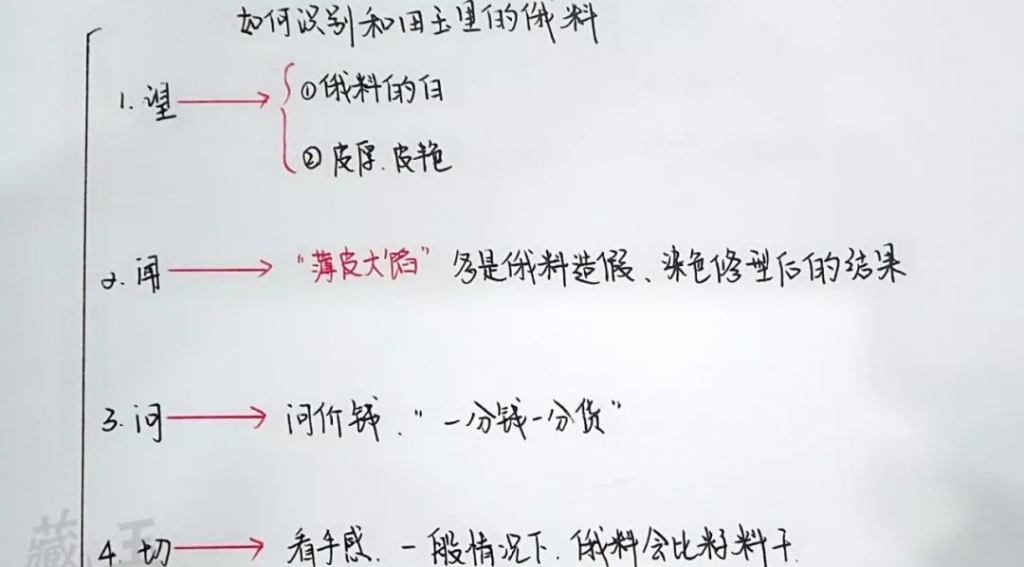 如何识别和田玉里的俄料
1.望 ①俄料的白
②皮厚.皮艳
2.闻 "薄皮大馅" 多是俄料造假、染色修型后的结果
3.问 问价钱."一分钱一分货"
4.切 看手感.一般情况下.俄料会比籽料干.
藏 玉